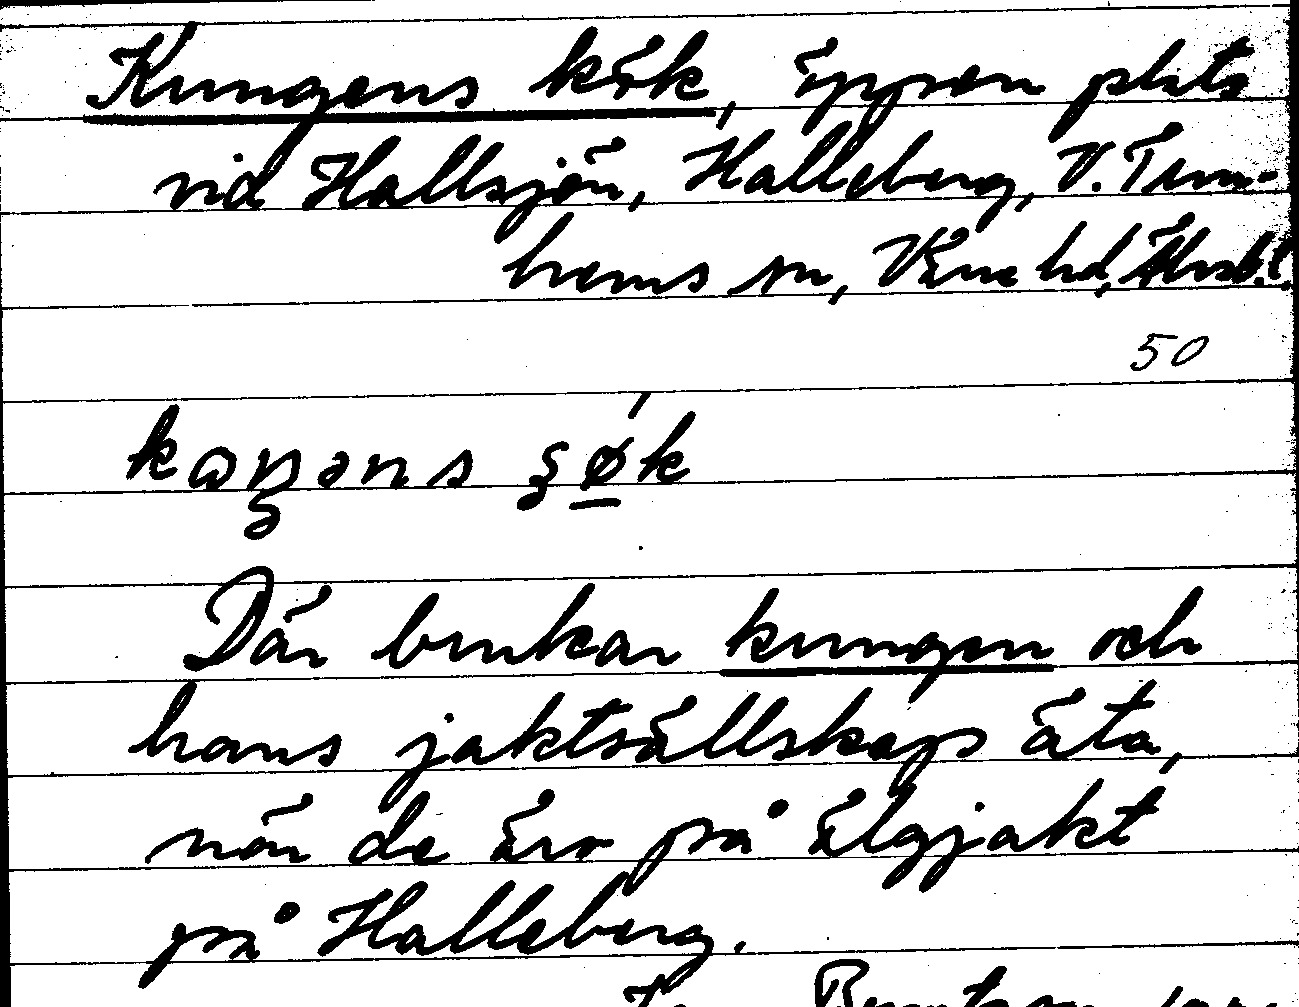 Kungens kök, öppen plats
vid Hallsjön, Halleberg, V. Tun-
hems sn, Väne hd, Älvsb.l.
50
kaŋəns
Där brukar kungen och
hans jaktsällskap äta,
när de äro på älgjakt
på Halleberg.